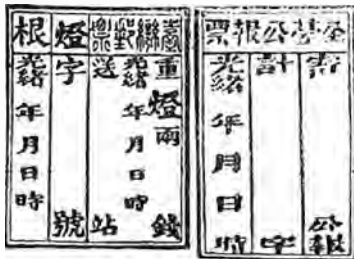 公報票
公報
計字
光緒年月日時
臺灣郵票
重燈兩錢
光緒年月日時
送站
燈字號
根
光緒年月日時